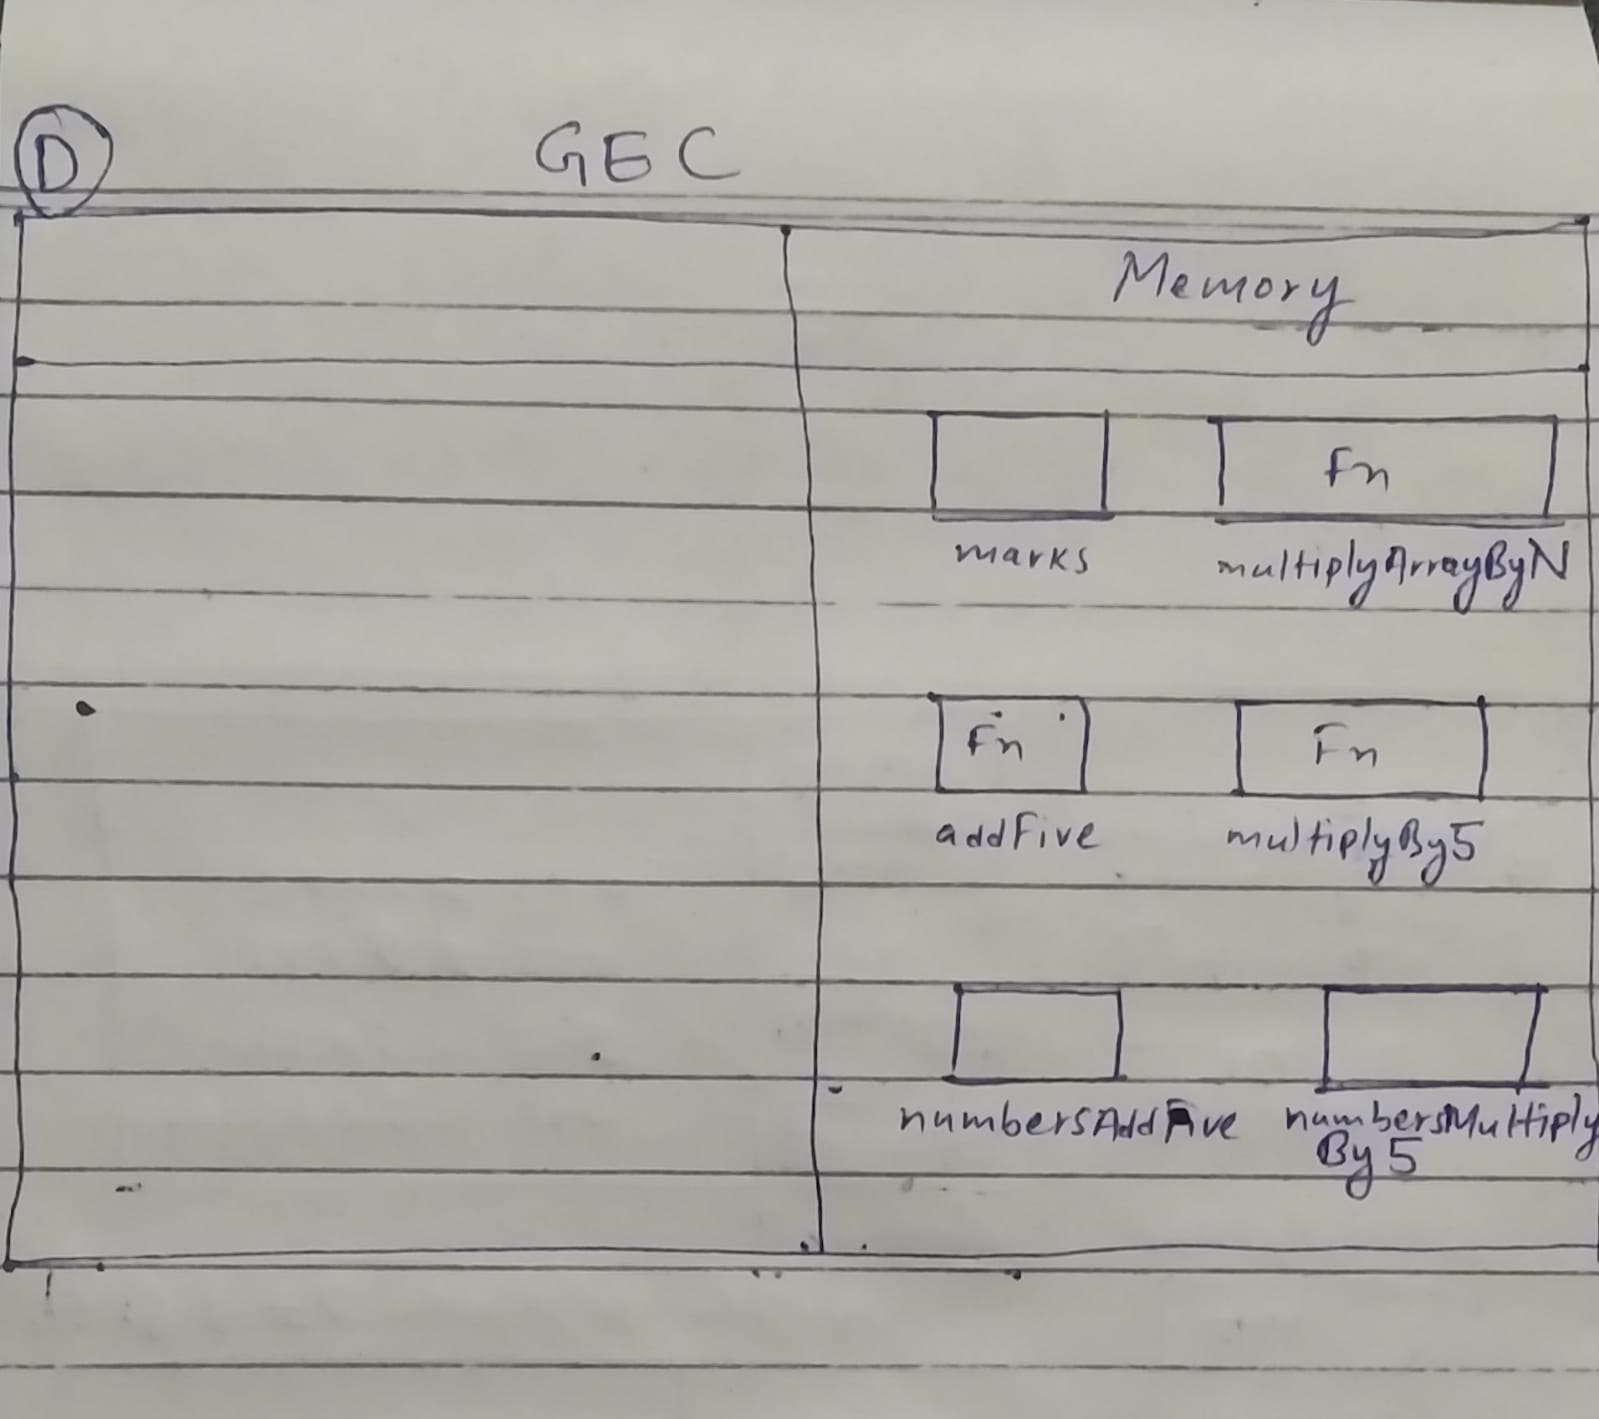 D GEC
Memory
Fn
marks multiplyArrayByN
Fn Fn
addFive multiplyBy5
numbersAddFive numbersMultiply
By 5